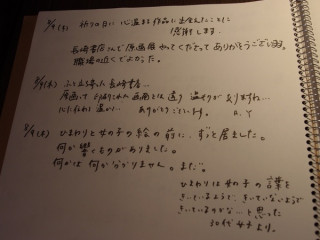 3/9(土) 祈りの日に 心温まる作品に出会えたことに
感謝します。
長崎書店さんで原画展 やってくださって ありがとうございます。
職場の近くでよかった。
3/9(木) ふと立寄った長崎書店…
原画って 印刷された画面とは 違う 温もりがありますね…
ありがとうございます。
3/9(土) ひまわりと女の子の絵の前に、ずっと居ました。
何か響くものがありました。
何かは 何か分かりません。まだ。
ひまわりは 女の子の言葉を
きいているようで、きいていないようで
きいているのかな…と思った
50代女子より。